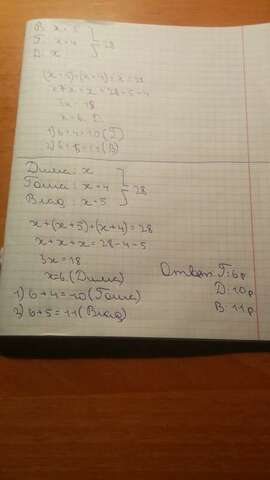 В: x + 5
Г: x + 4
Д: x
28
(x+5)+(x+4)+x=28
x+x+x=28-5-4
3x=18
x=6 Д
1) 6+4=10 (Г)
2) 6+5=11 (В)
Дима: x
Гоша: x+4
Влад: x+5
28
x+(x+5)+(x+4)=28
x+x+x=28-4-5
3x=18
x=6 (Дима)
1) 6+4=10 (Гоша)
2) 6+5=11 (Влад)
Ответ: Г: 6р
Д: 10р
В: 11р